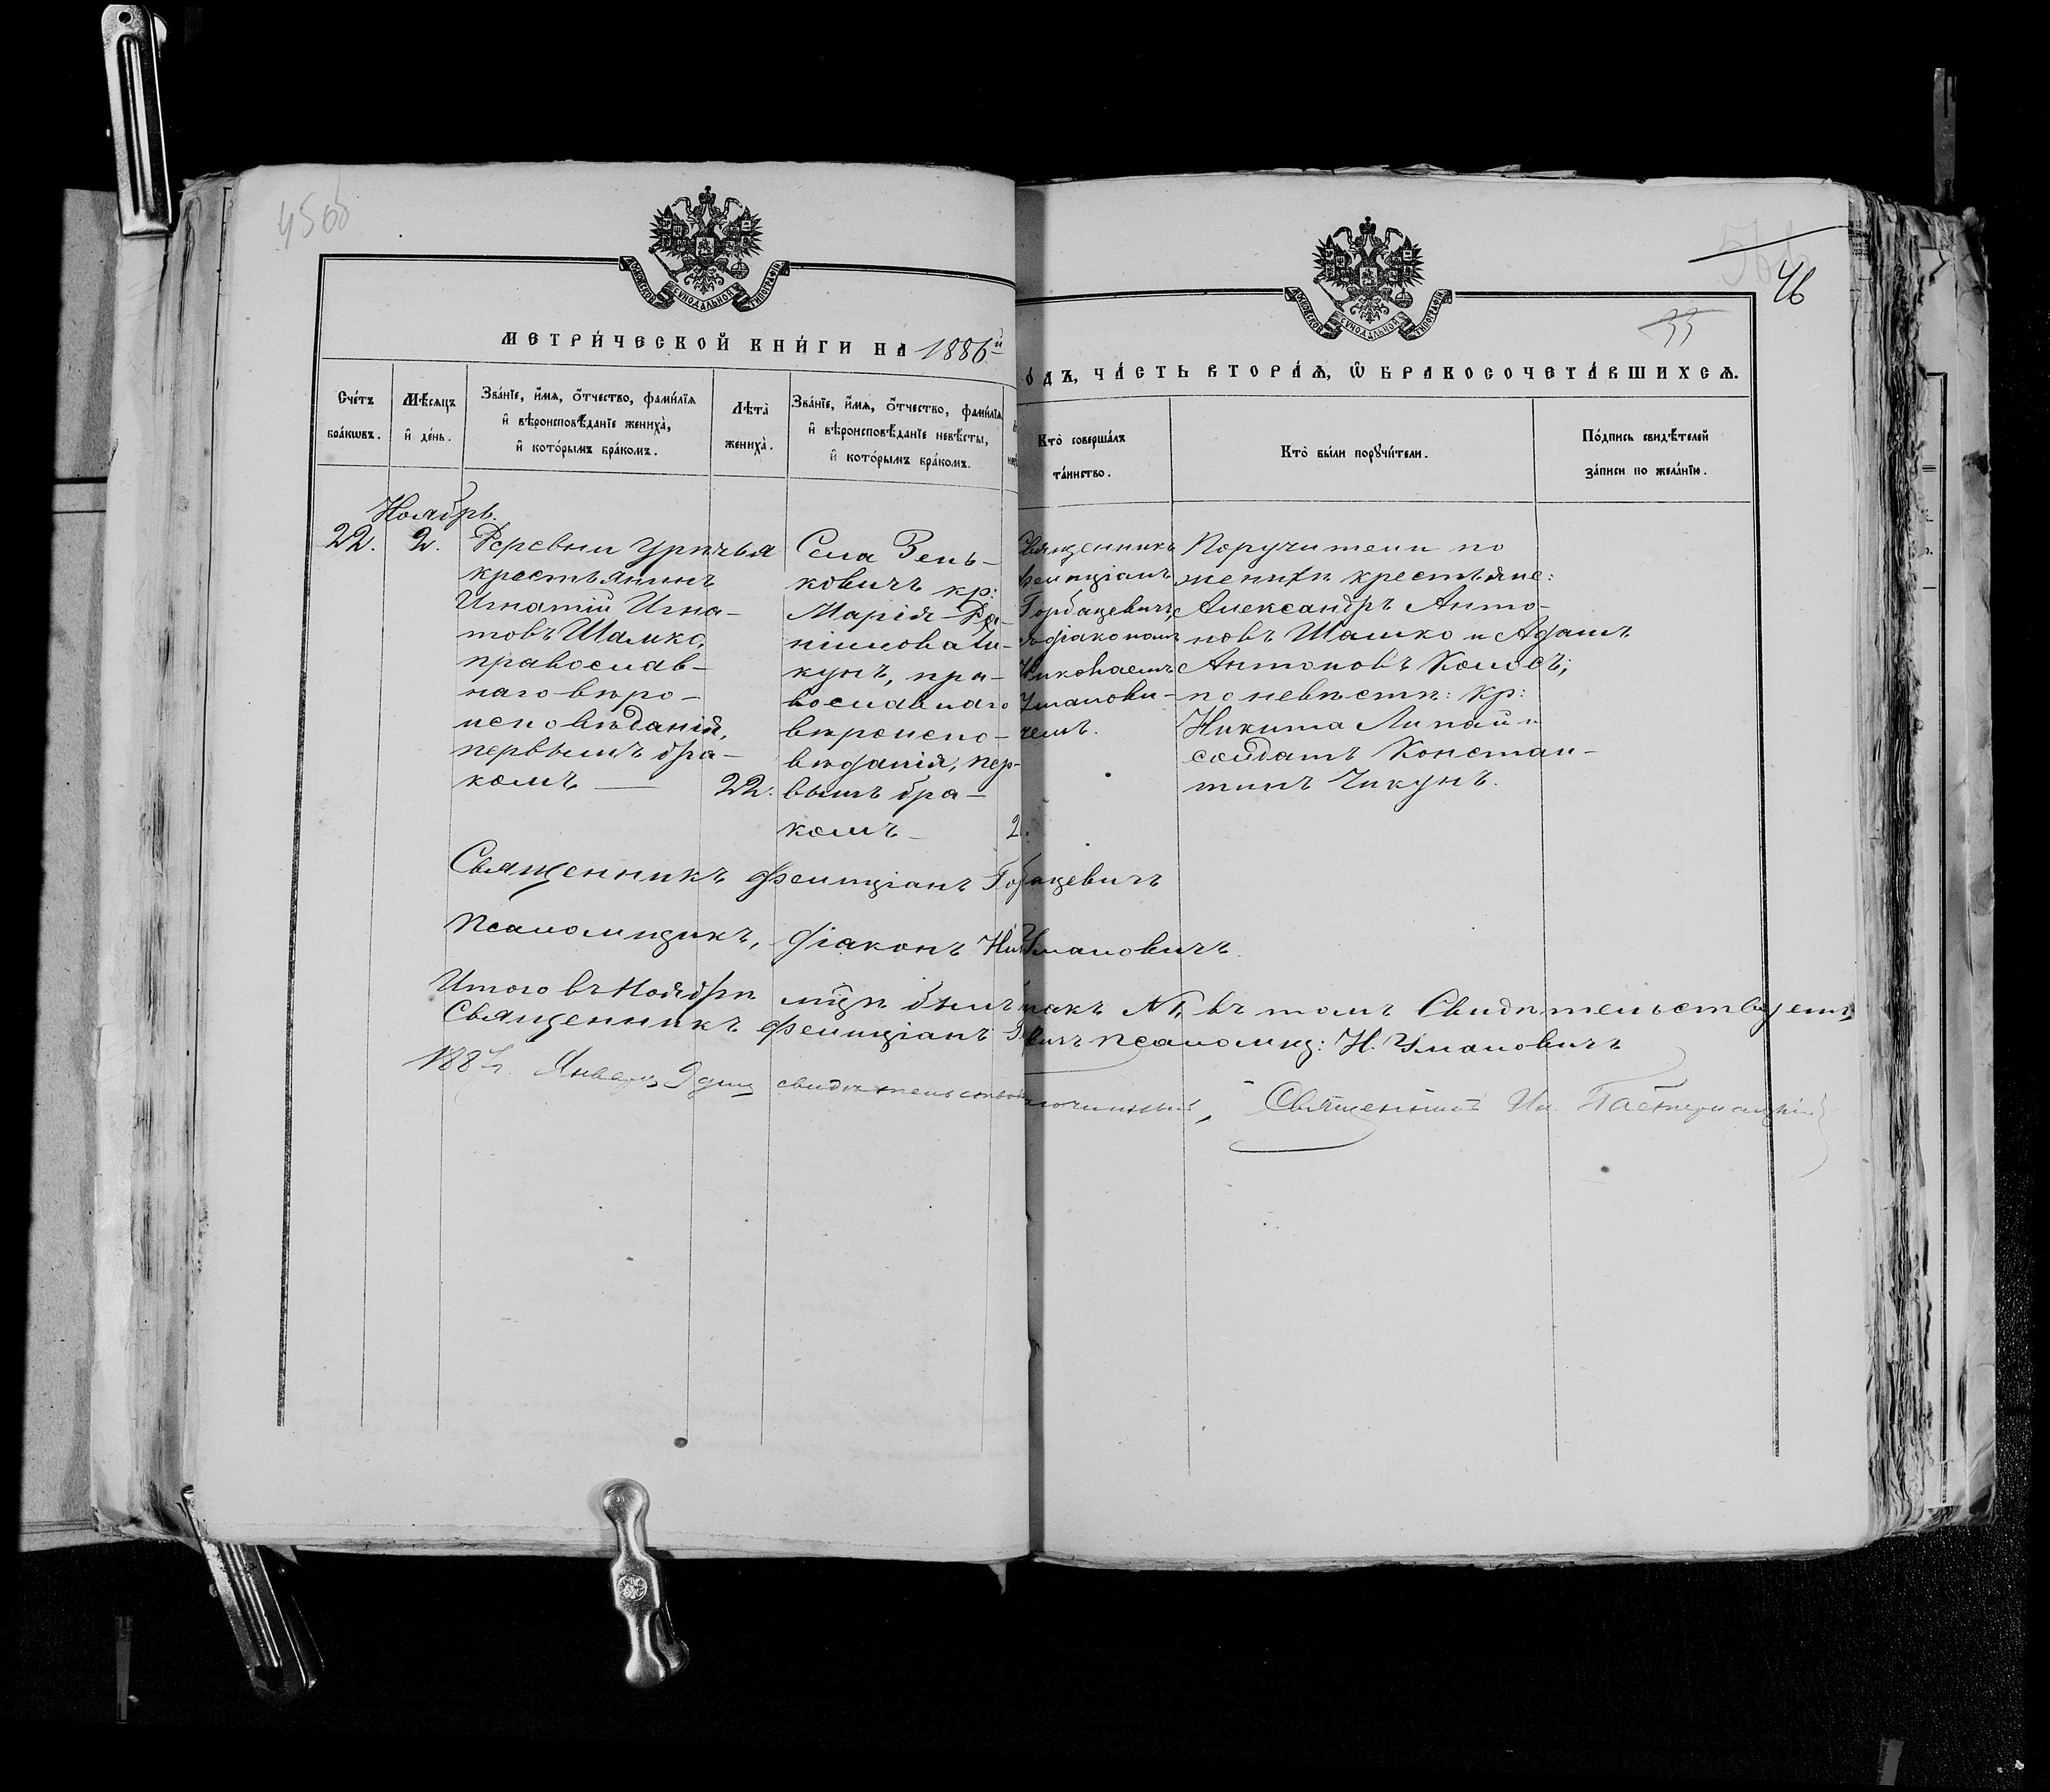 45об
46
33
МОСКОВСКОЙ СѴНОДАЛЬНОЙ ТИПОГРАФІИ
МОСКОВСКОЙ СѴНОДАЛЬНОЙ ТИПОГРАФІИ
МЕТРИ́ЧЕСКОЙ КНИ́ГИ НА 1886й
О́ДЪ, ЧА́СТЬ ВТОРА́Ѧ, Ѽ БРАКОСОЧЕТА́ВШИХСѦ.
Сче́тъ
бра́кωвъ.
Мѣ́сяцъ
и҆ де́нь.
Зва́нїе, и҆́мя, ѻ҆́тчество, фами́лїя
и҆ вѣроисповѣ́данїе жениха̀,
и҆ кото́рымъ бра́комъ.
Лѣта̀
жениха̀.
Зва́нїе, и҆́мя, ѻ҆́тчество, фами́лїя
и҆ вѣроисповѣ́данїе невѣ́сты,
и҆ кото́рымъ бра́комъ.
Кто̀ соверша́лъ
та́инство.
Кто̀ бы́ли порꙋчи́тели.
По́дпись свидѣ́телей
за́писи по жела́нїю.
Ноябрь.
22.
2.
Деревни Урѣчья
крестьянинъ
Игнатій Игна-
товъ Шамко,
православ-
наго вѣро-
исповѣданія,
первымъ бра-
комъ —
22.
Села Зень-
ковичъ кр:
Марія Да-
ніилова Чи-
кунъ, пра-
вославнаго
вѣроиспо-
вѣданія, пер-
вымъ бра-
комъ —
2
Священникъ
Фелиціанъ
Горбацевичъ
съ діакономъ
Николаемъ
Уманови-
чемъ.
Поручители по
женихѣ крестьяне:
Александръ Анто-
новъ Шамко и Адамъ
Антоновъ Колосъ;
по невѣстѣ: кр:
Никита Липай и
солдатъ Констан-
тинъ Чикунъ.
Священникъ Фелиціанъ Гор бацевичъ
Псаломщикъ, діаконъ Ник Умановичъ
Итого въ Ноябрѣ мцѣ былъ бракъ №1, въ томъ Свидѣтельствуемъ,
Священникъ Фелиціанъ вичъ псаломщ: Н. Умановичъ
1887 г. Января 9 дня свидѣтельствовалъ Благочинный, Священникъ